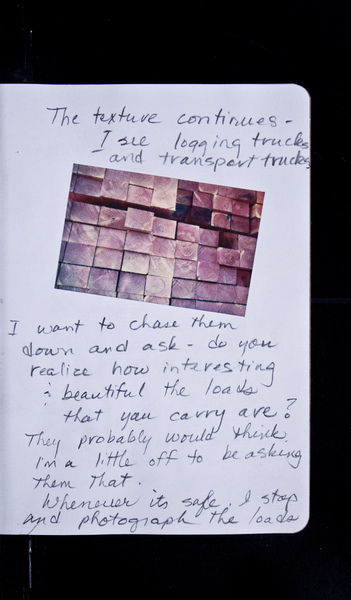 The texture continues -
I see logging trucks
and transport trucks
I want to chase them
down and ask - do you
realize how interesting
& beautiful the loads
that you carry are?
They probably would think
i'm a little off to be asking
them that.
Whenever its safe, I stop
and photograph the loads